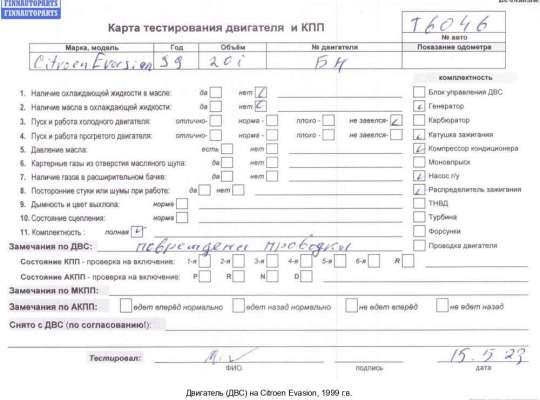 FINNAUTOPARTS
FINNAUTOPARTS
Карта тестирования двигателя и КПП
T6046
№ авто
Марка, модель Год Объём № двигателя Показание одометра
Citroen Evasion 99 20i БН
комплектность
1. Наличие охлаждающей жидкости в масле: да нет Блок управления ДВС
2. Наличие масла в охлаждающей жидкости: да нет Генератор
3. Пуск и работа холодного двигателя: отлично- норма - плохо - не завелся- Карбюратор
4. Пуск и работа прогретого двигателя: отлично- норма - плохо - не завелся- Катушка зажигания
5. Давление масла: есть нет Компрессор кондиционера
6. Картерные газы из отверстия масляного щупа: да нет Моновпрыск
7. Наличие газов в расширительном бачке: да нет Насос г/у
8. Посторонние стуки или шумы при работе: да нет Распределитель зажигания
9. Дымность и цвет выхлопа: норма ТНВД
10. Состояние сцепления: норма Турбина
11. Комплектность : полная Форсунки
Замечания по ДВС: повреждены проводка Проводка двигателя
Состояние КПП - проверка на включение: 1-я 2-я 3-я 4-я 5-я 6-я R
Состояние АКПП - проверка на включение: P R N D
Замечания по МКПП:
Замечания по АКПП: едет вперёд нормально едет назад нормально не едет вперёд не едет назад
Снято с ДВС (по согласованию!):
Тестировал: 15.5.23
ФИО подпись дата
Двигатель (ДВС) на Citroen Evasion, 1999 г.в.